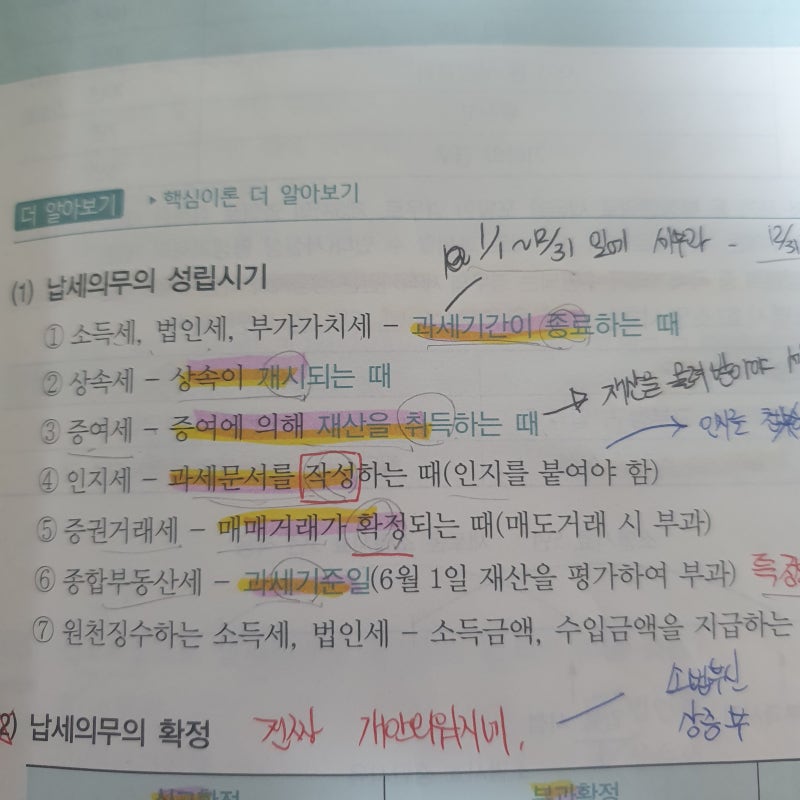 더 알아보기 ▸ 핵심이론 더 알아보기
1/1 ~ 12/31 일에 세무라 - 12/31
(1) 납세의무의 성립시기
① 소득세, 법인세, 부가가치세 – 과세기간이 종료하는 때
② 상속세 – 상속이 개시되는 때
재산을 물려받아야
③ 증여세 – 증여에 의해 재산을 취득하는 때
인지를
④ 인지세 – 과세문서를 작성하는 때(인지를 붙여야 함)
⑤ 증권거래세 – 매매거래가 확정되는 때(매도거래 시 부과)
⑥ 종합부동산세 – 과세기준일(6월 1일 재산을 평가하여 부과)
⑦ 원천징수하는 소득세, 법인세 – 소득금액, 수입금액을 지급하는
소법부신
상증부
(2) 납세의무의 확정 진짜 개안외워지네.
신고확정 부과확정